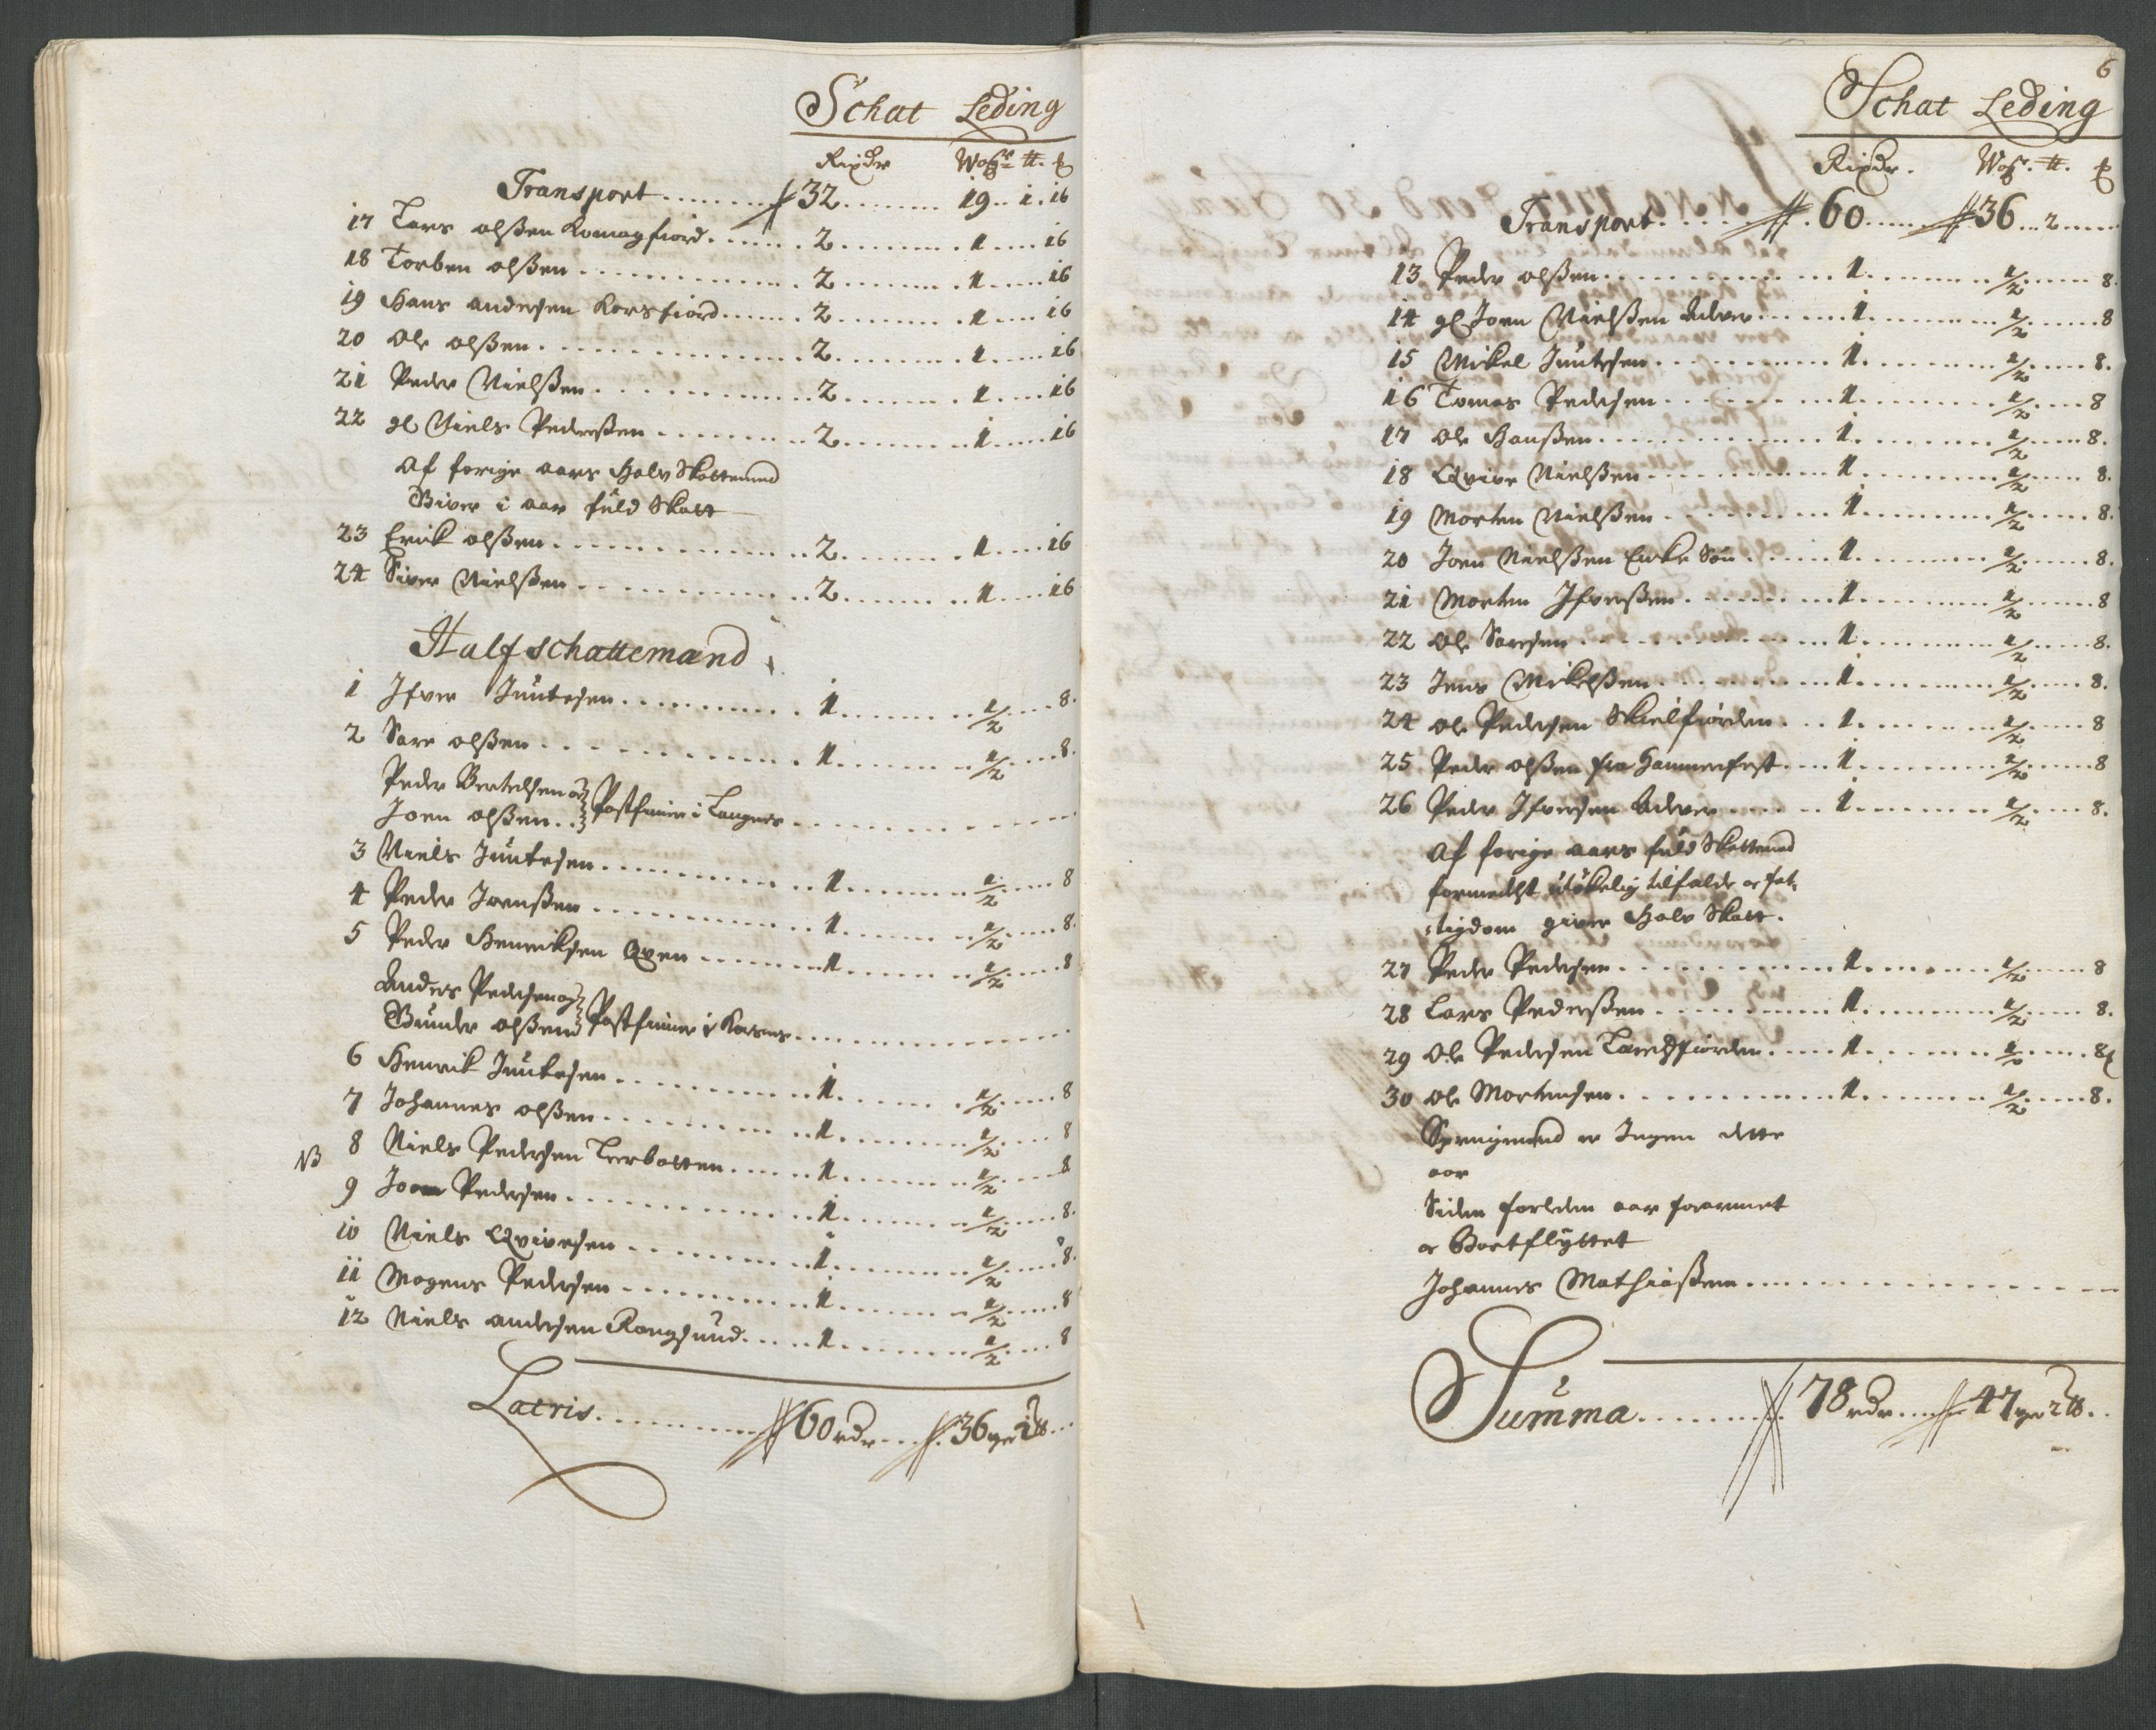 Schat Leding
Rixdr Wog^r ## ℔
Transport ........ 32 ........ 19 .. 1 . 16
17 Lars olßen Komagfiord ....... 2 ........ 1 .... 16
18 Torben olßen ........ 2 ........ 1 .... 16
19 Hans andersen Korsfiord ....... 2 ........ 1 .... 16
20 Ole olßen ........ 2 ........ 1 .... 16
21 Peder Nielßen ........ 2 ........ 1 .... 16
22 gl Niels Pederßen ........ 2 ........ 1 .... 16
Af forige aars Halv Skattemend
Giver i aar fuld Skatt
23 Erick olßen ........ 2 ........ 1 .... 16
24 Siver Nielßen ........ 2 ........ 1 .... 16
Halfschattemænd
1 Ifver Juutesen ........ 1 ........ 1/2 .... 8.
2 Sare olßen ........ 1 ........ 1/2 .... 8.
Peder Bertelsen og
Joen olßen .. Postfinner i Langnes ........
3 Niels Juutesen ........ 1 ........ 1/2 .... 8
4 Peder Joenßen ........ 1 ........ 1/2 .... 8.
5 Peder Henriksen Qven ........ 1 ........ 1/2 .... 8
Anders Pedersen og
Gunder olßen Postfinner i ........
6 Henrik Juutesen ........ 1 ........ 1/2 .... 8
7 Johannes olßen ........ 1 ........ 1/2 .... 8
NB 8 Niels Pedersen Leerbotten ..... 1 ........ 1/2 .... 8
9 Joen Pedersen ........ 1 ........ 1/2 .... 8.
10 Niels Qvivesen ........ 1 ........ 1/2 .... 8.
11 Mogens Pedersen ........ 1 ........ 1/2 .... 8
12 Niels andersen Rongsund ..... 1 ........ 1/2 .... 8
Latris ........ 60 rdr .... 36 wger 2 ℔ ...
6
Schat Leding
Rixdr. Wog^r. ##. ℔
Transport ..... 60 ...... 36 ... 2 .....
13 Peder olßen ........ 1 ........ 1/2 ..... 8.
14 gl Joen Nielßen ...... 1 ........ 1/2 ..... 8
15 Mikel Juutesen ........ 1 ........ 1/2 ..... 8.
16 Tomas Pedersen ........ 1 ........ 1/2 ..... 8
17 Ole Hanßen ........ 1 ........ 1/2 ..... 8.
18 Qvive Nielßen ........ 1 ........ 1/2 ..... 8.
19 Morten Nielßen ........ 1 ........ 1/2 ..... 8.
20 Joen Nielßen Enke Søn ..... 1 ........ 1/2 ..... 8.
21 Morten Ifverßen ........ 1 ........ 1/2 ..... 8
22 Ole Saresen ........ 1 ........ 1/2 ..... 8.
23 Jens Mikelßen ........ 1 ........ 1/2 ..... 8.
24 ole Pedersen Skielfiorden ... 1 ........ 1/2 ..... 8
25 Peder olßen fra Hammerfest ... 1 ........ 1/2 ..... 8
26 Peder Ifversen ..... 1 ........ 1/2 ..... 8.
Af forige aars fuld Skattemend
formedelst ulökelig tilfalde og fat,
:tigdom giver Halv Skatt.
27 Peder Pedersen ........ 1 ........ 1/2 ..... 8
28 Lars Pederßen ........ 1 ........ 1/2 ..... 8.
29 Ole Pedersen ..... 1 ........ 1/2 ..... 8
30 Ole Mortensen ........ 1 ........ 1/2 ..... 8.
er Ingen dette
aar
Siden forleden aar forarmet
og Bortflyttet
Johannes Mathiaßen ........
Summa ........ 78 rdr .... 47 wger 2 ℔ ..